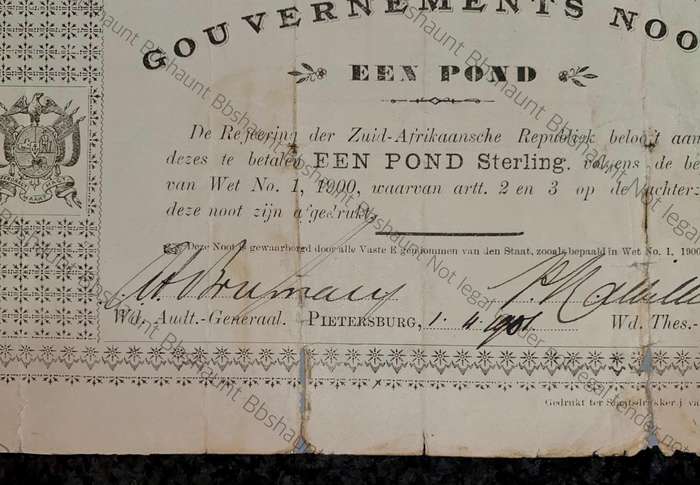 GOUVERNEMENTS NOO
EEN POND
De Regeering der Zuid-Afrikaansche Republiek belooft aan
dezes te betalen EEN POND Sterling. volgens de be
van Wet No. 1, 1900, waarvan artt. 2 en 3 op de achter
deze noot zijn afgedrukt.
Deze Noot is gewaarborgd door alle Vaste Eigendommen van den Staat, zooals bepaald in Wet No. 1, 1900
Wd. Audt.-Generaal. PIETERSBURG, 1. 4. 1901 Wd. Thes.-
Gedrukt ter Staatsdrukkerij va
Bbshaunt Not legal tender